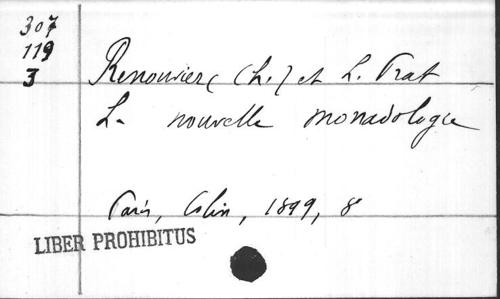 307
119
3
Renouvier (Ch.) et L. Prat
La nouvelle monadologie
Paris, Colin, 1899, 8
LIBER PROHIBITUS